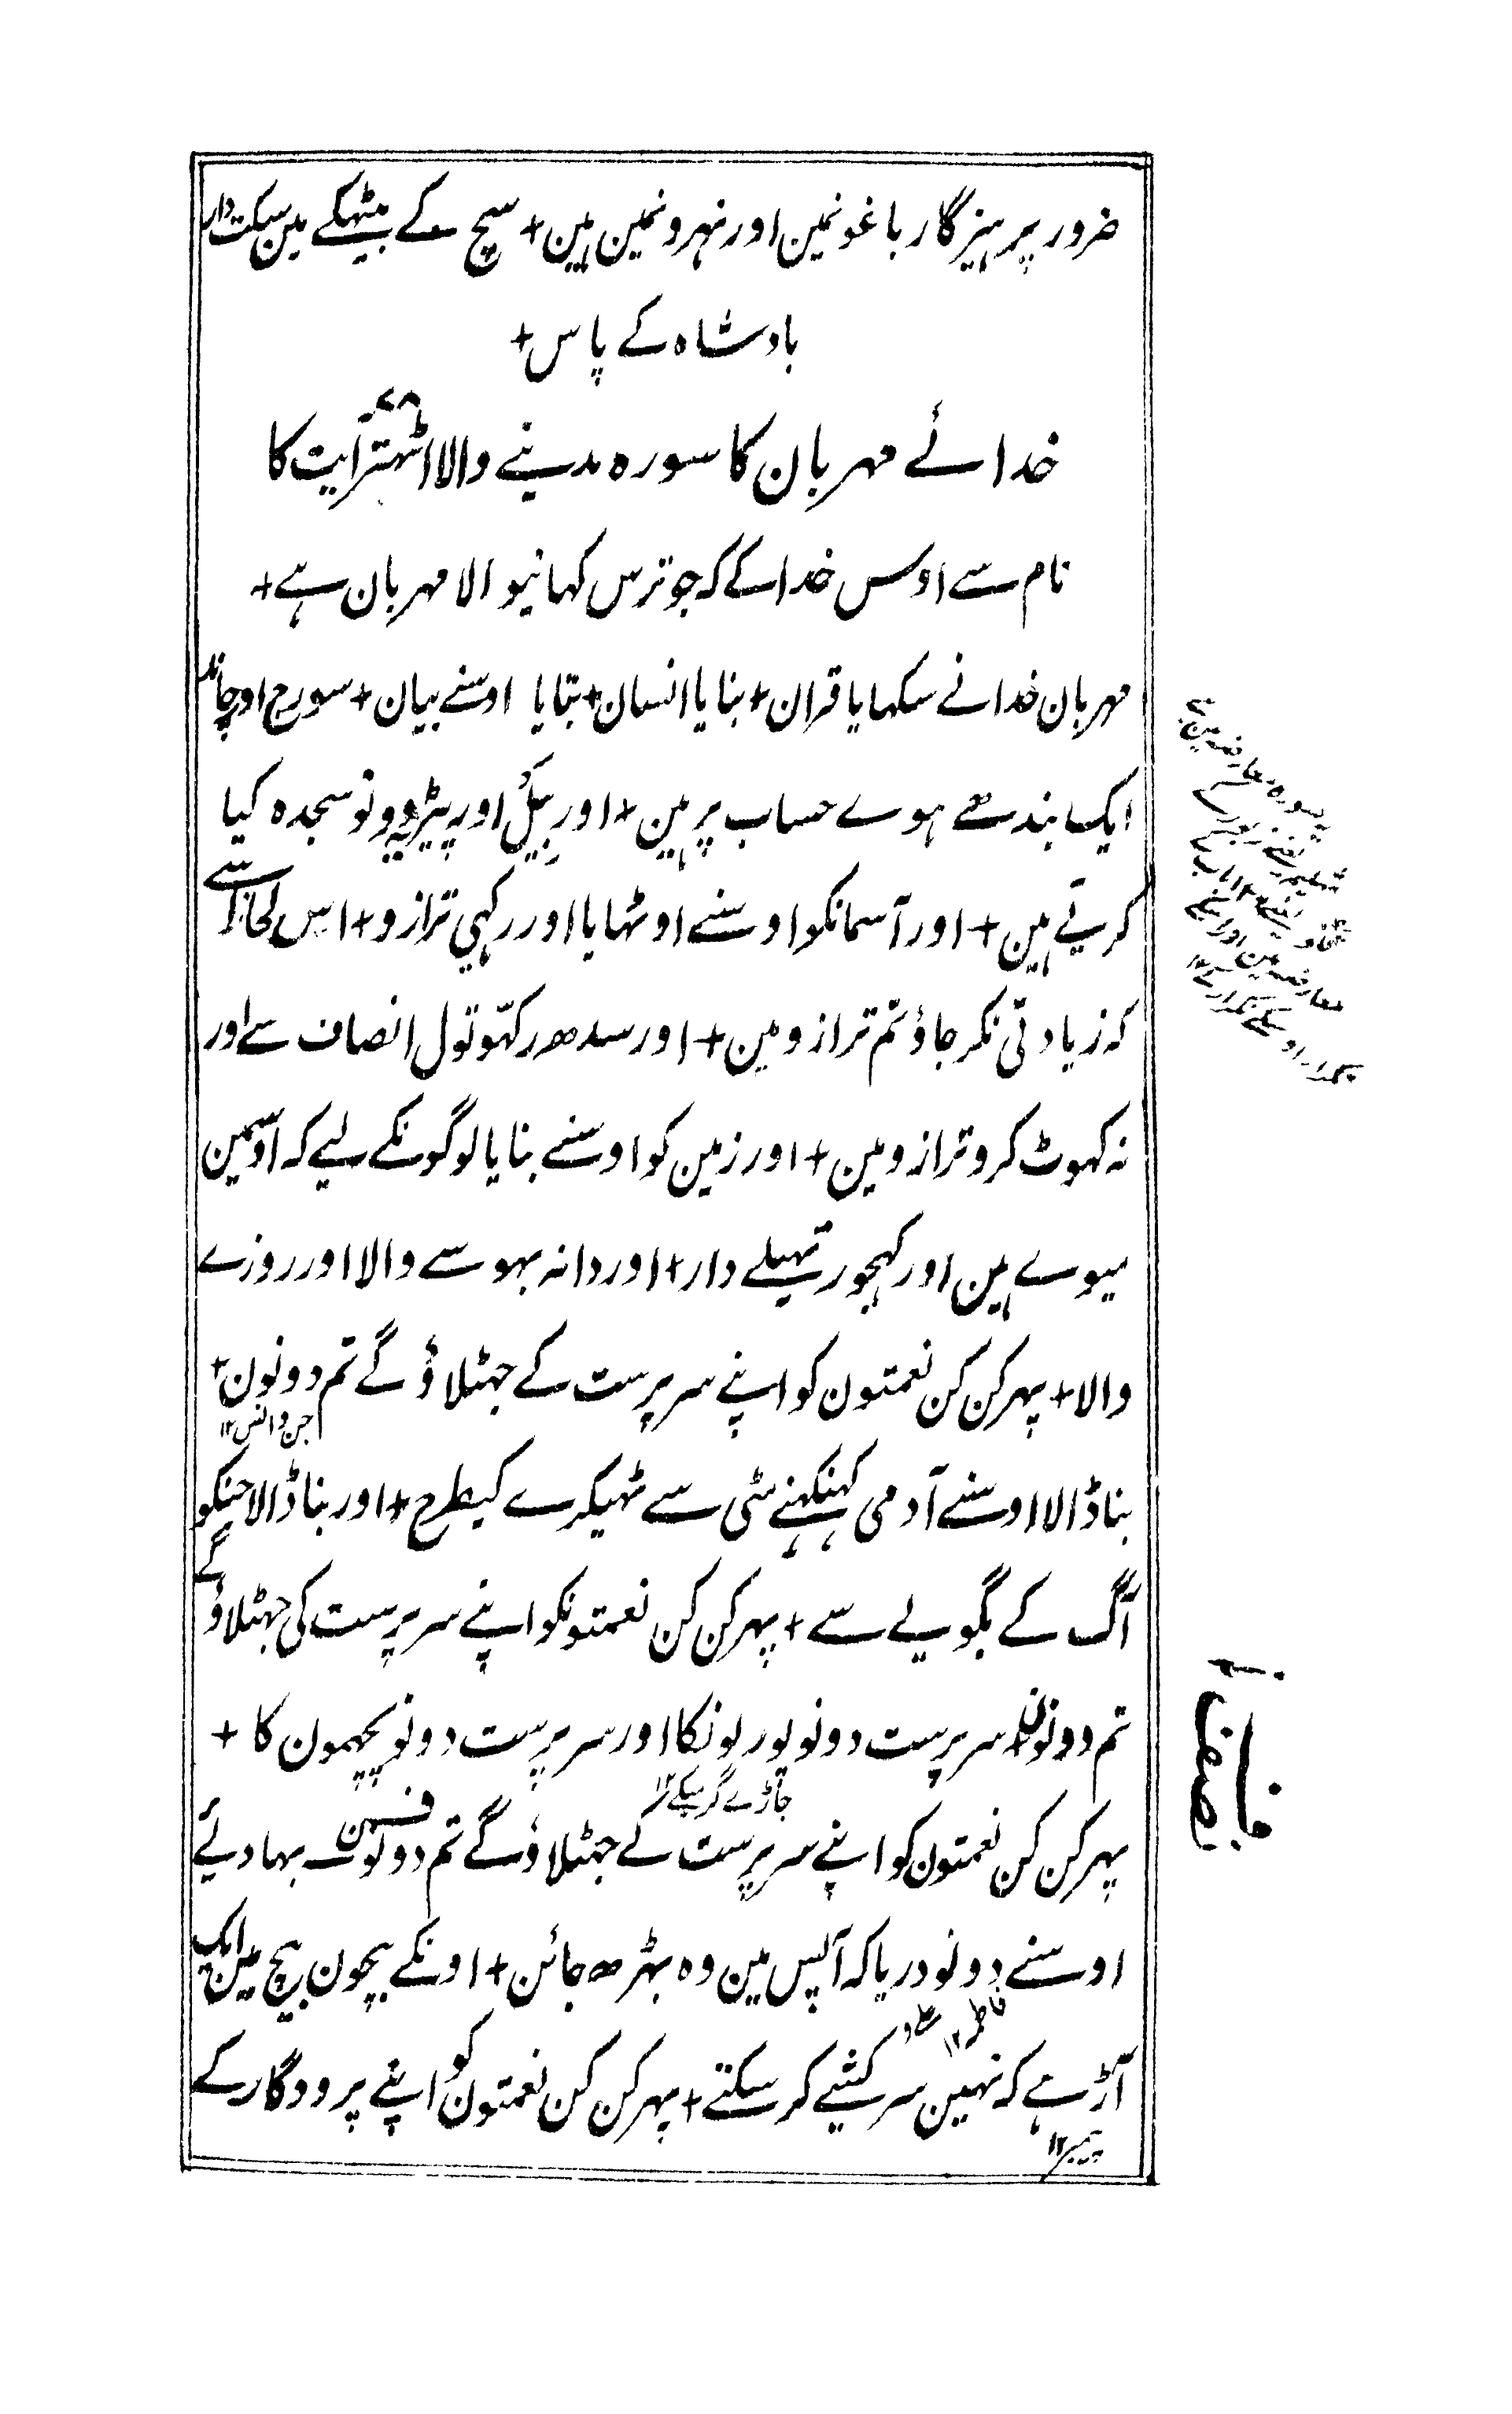 ضرور پرہیزگار باغونمین اور نہرونمین ہین + سچ کے بیٹھکے مین سکت دار
بادشاہ کے پاس +
۷۸
خدائے مہربان کا سورہ مدینے والا اٹھتر آیت کا
نام سے اوس خدا کے کہ جو ترس کہانیوالا مہربان ہے +
مہربان خدا نے سکہایا قران + بنایا انسان + بتایا اوسنے بیان + سورج اور چاند
ایک بندھے ہوے حساب پر ہین + اور بیل اور پیڑ یہ دونو سجدہ کیا
کرتے ہین + اور آسمانکو اوسنے اوٹہایا اور رکہی ترازو + اس لحاظ سے
کہ زیادتی نکر جاؤ تم ترازو مین + اور سدھ رکہو تول انصاف سے اور
نہ کہوٹ کرو ترازو مین + اور زمین کو اوسنے بنایا لوگونکے لیے کہ اوسمین
میوے ہین اور کہجور تہیلے دار + اور دانہ بہوسے والا اور روزے
والا + پہر کن کن نعمتون کو اپنے سرپرست کے جہٹلاؤ گے تم دونون +
جن و انس ۱۲
بنا ڈالا اوسنے آدمی کہنکہنے مٹی سے ٹہیکرے کیطرح + اور بنا ڈالا جنکو
آگ کے بگولے سے + پہر کن کن نعمتونکو اپنے سرپرست کی جہٹلاؤ گے
تم دونون + سرپرست دونو پوربونکا اور سرپرست دونو پچہمون کا +
جاڑے گرمیکے ۱۲
پہر کن کن نعمتون کو اپنے سرپرست کے جہٹلاؤ گے تم دونون بہادئے
اوسنے دونو دریا کہ آپس مین وہ بہڑھ جائن + اونکے بیچون بیچ مین ایک
فاطمہ ۱۲
آڑ ہے کہ نہین سرکشیے کر سکتے + پہر کن کن نعمتون کو اپنے پرودگار کے
پیمبر ۱۲